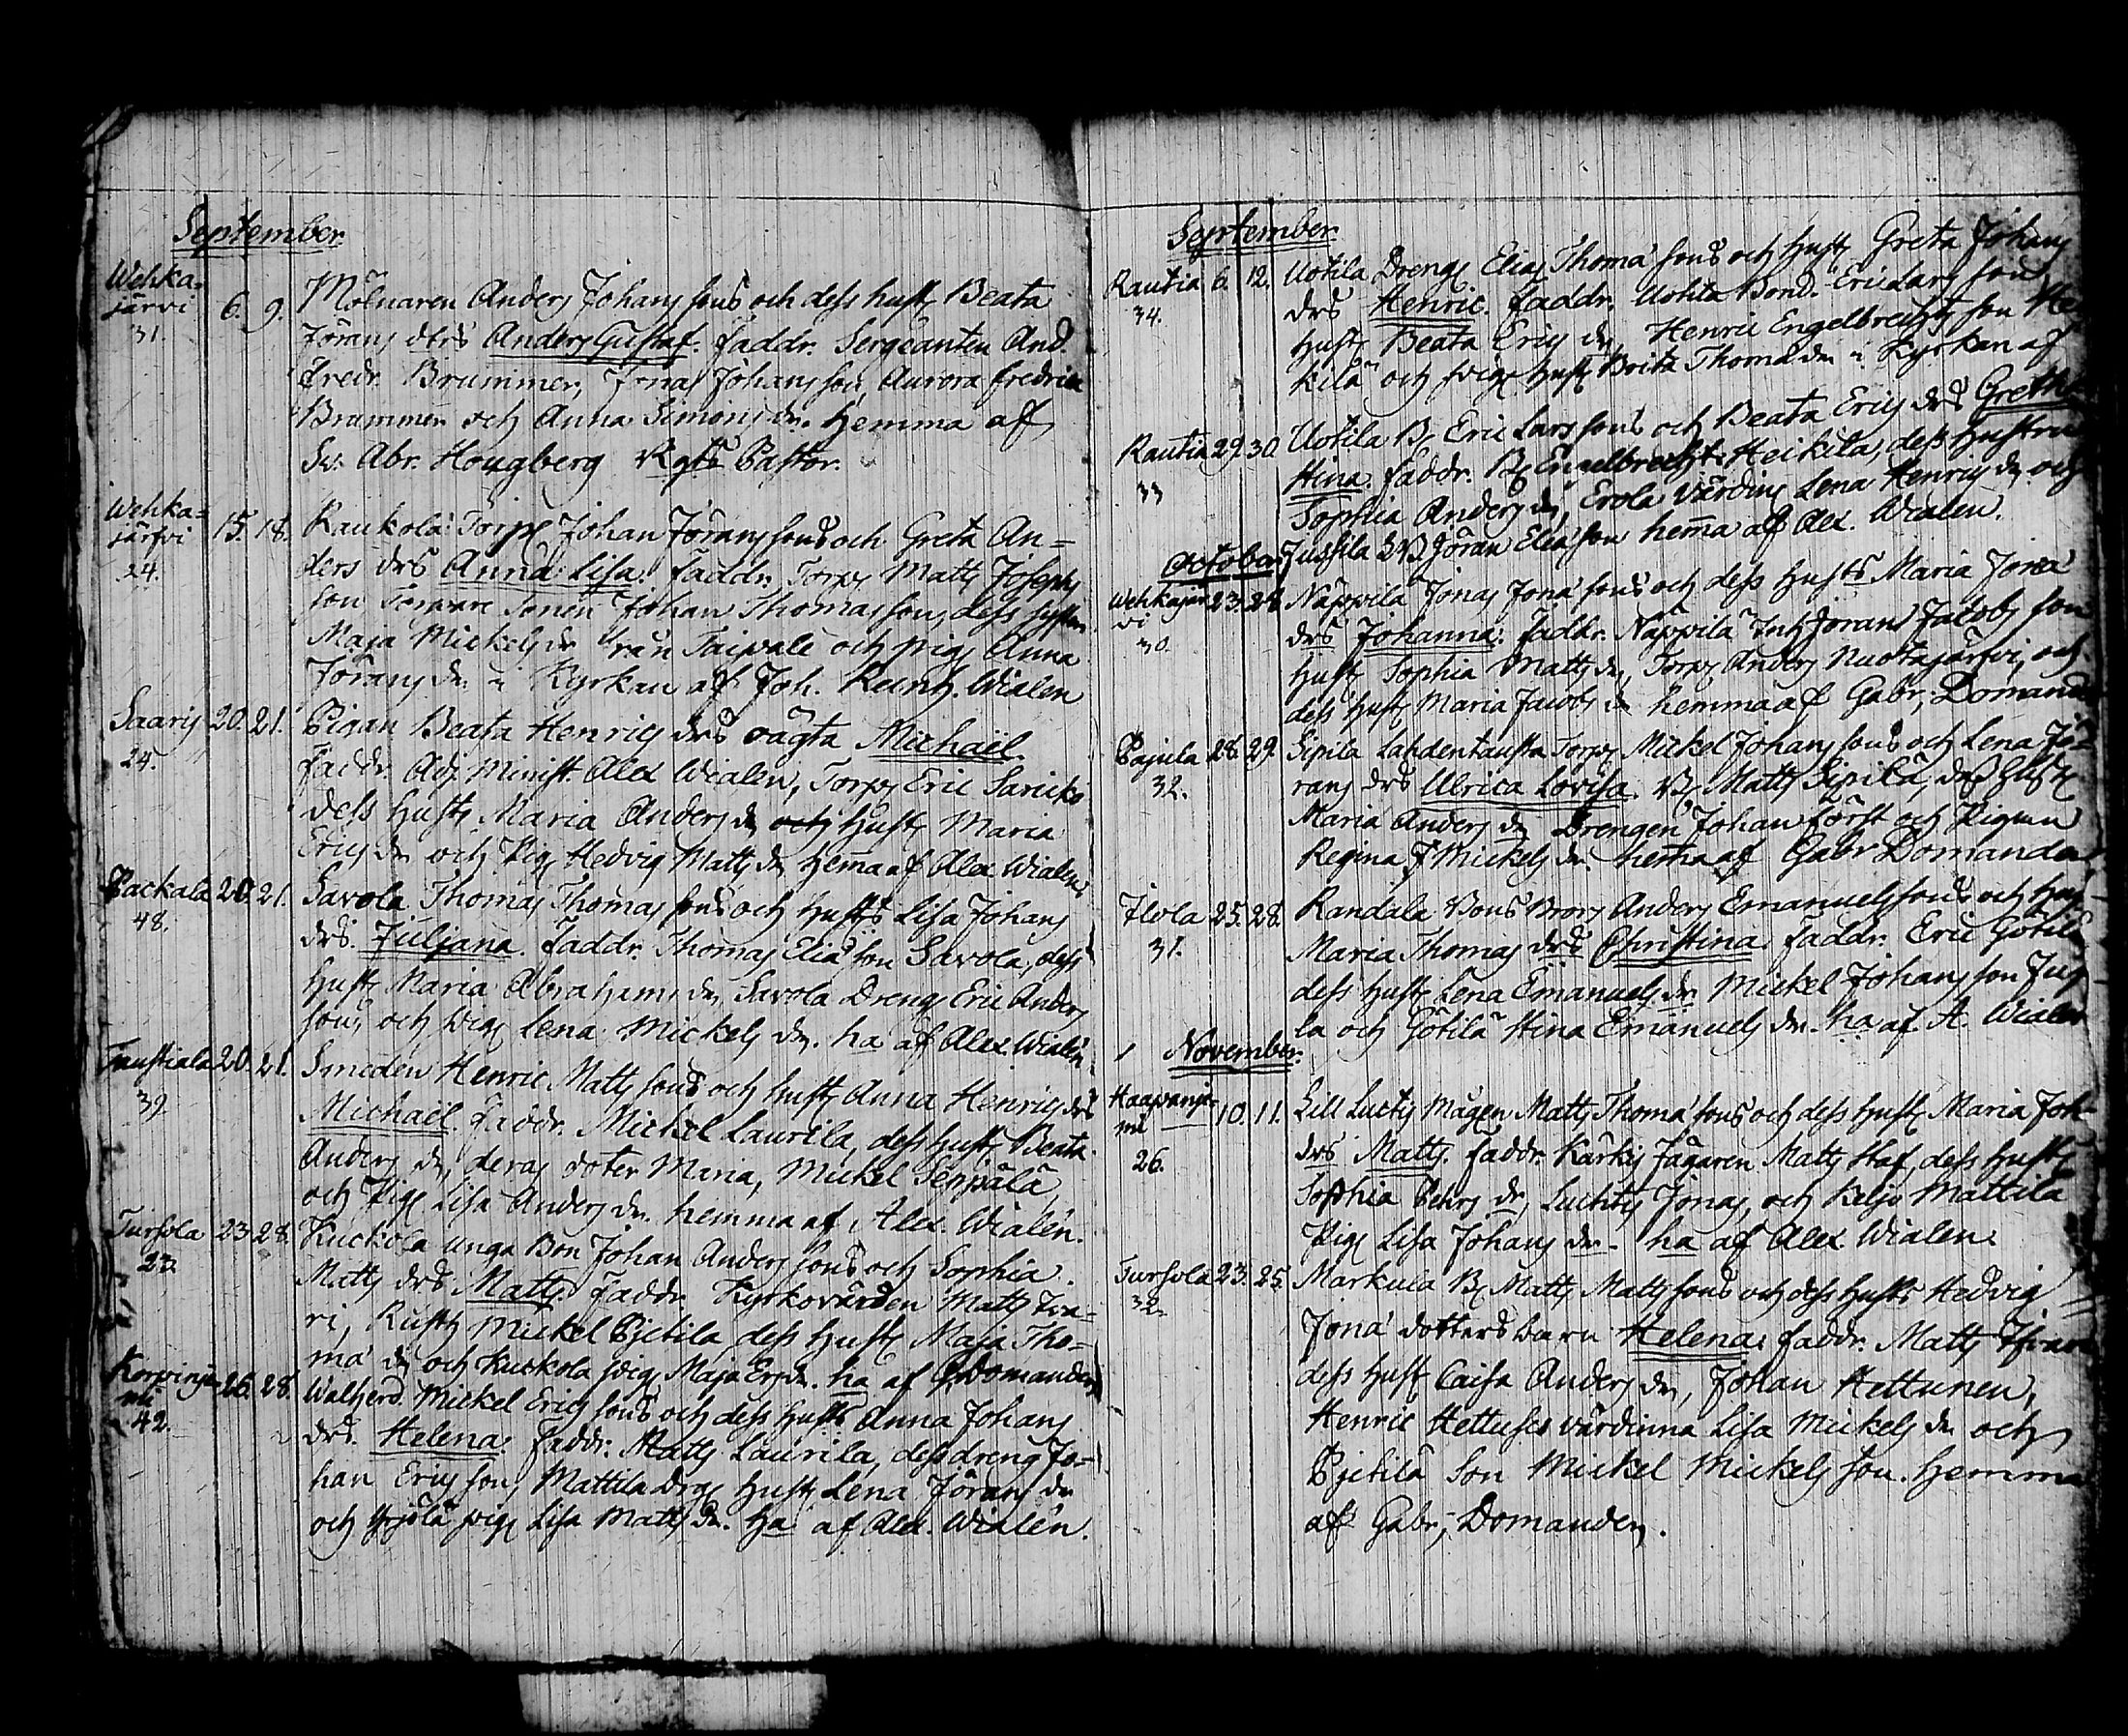 September
Wehka-
järvi 6. 9. Mölnaren Anders Johans sons och dess hust. Beata
31.
Jörans dors Anders Gustaf. Faddr. Sergeanten And.
Fredr. Brummer, Jonas Johans son, Aurora Fredrica
Brummer och Anna Simons dr. Hemma af
Sv. Abr. Hougberg Rgts Pastor.
Wehka=
järfvi 15. 18. Kaukola Torp. Johan Jörans sons och Greta An-
24.
ders drs Anna Lisa. Faddr. Torp. Matts Josephs
son Torpare Sonen Johan Thomas son, dess
Maja Mickels dr från Taipale och pig. Anna
Jörans dr i Kyrkan af Joh. Wialen
Saaris 20. 21. Pigan Beata Henrics drs oägta Michaël.
24.
Faddr. Adj. Minist. Alex Wialen, Torp. Eric
dess hust. Maria Anders dr och hust. Maria
Erics dr och Pig. Hedvig Matts dr hema af Alex Wialen
Packala 20. 21. Savola Thomas Thomas sons och husts Lisa Johans
48.
drs. Juliana. Faddr. Thomas Elia son Savola, dess
hust. Maria Abrahams dr, Savola Dreng. Eric Anders
son, och pig. Lena Mickels dr. ha af Alex Wialen
Taustiala 20. 21. Smeden Henric Matts sons och hust. Anna Henrics drs
39.
Michaël. Faddr. Mickel Laurila, dess hust. Beata
Anders dr, deras doter Maria, Mickel Seppälä
och Pig. Lisa Anders dr. hemma af Alex. Wialén.
Tursola 23. 28. Kuckola unga Bon Johan Anders sons och Sophia
23.
Matts drs Matts. Faddr. Kyrkovärden Matts
ri, Rusth. Mickel Pjetila, dess hust. Maja Tho-
ma dr och Kuckola pig. Maja Ers dr. ha af G. Domander
Korpinje
mi 26. 28. Walherd. Mickel Erics sons och dess husts Anna Johans
42.
drs. Helena. Faddr. Matts Laurila, dess dreng Jo-
han Erics son, Mattila Drg. hust. Lena Jörans dr
och Yrjölä pig. Lisa Matts dr. ha af Alex. Wialén.
September.
Rautia 6. 12. Uotila Dreng. Elias Thoma sons och hust. Greta Johans
34.
drs Henric. Faddr. Uotila Bond. Eric Lars son
hust. Beata Erics dr, Henric Engelbrechts son Hei-
kilä och pig. hust. Brita Thoma dr i Kyrkan af
Rautia 29. 30. Uotila B. Eric Lars sons och Beata Erics drs Gretha
33
Stina. Faddr. B. Engelbrecht Heikila, dess hustru
Sophia Anders dr, Erola värdin. Lena Henrics dr och
Jussila Jöran Elia son hema af Alex. Wialen.
October
Wehkajär
vi 23. 24. Näppilä Jonas Jona sons och dess husts Maria Jona
30.
drs Johanna. Faddr. Näppilä Inh. Jöran Jacobs son
hust. Sophia Matts dr, Torp. Anders Nuotajärfvi, och
dess hust. Maria Jacobs dr hemma af Gabr, Domander
Pajula 28. 29. Sipila Lahdentausta Torp. Mickel Johans sons och Lena Jö-
32.
rans drs Ulrica Lovisa. B. Matts Sipilä, dess hust.
Maria Anders dr Drengen Johan Först och Pigan
Regina Mickels dr hema af Gabr Domander
Ilola 25. 28. Randala Bons Bror Anders Emanuels sons och hus.
31.
Maria Thomas drs Christina. Faddr. Eric Götilä
dess hust. Lena Emanuels dr. Mickel Johans son Jus
la och Götilä Stina Emanuels dr. ha af A. Wialen
November.
Haapanje
mi 10. 11. Lill Luctis mågen Matts Thoma sons och dess hust. Maria Joh-
26.
drs Matts. Faddr. Kärkis Jägaren Matts Staf, dess hust.
Sophia Pehrs dr, Luchtis Jonas, och Keljo Mattila
Pig. Lisa Johans dr. ha af Alex Wialen.
Tursola 23. 25. Markula B. Matts Matts sons och dess husts Hedvig
32.
Jona dotters barn Helena. Faddr. Matts
dess hust. Caisa Anders dr, Johan Hettunen,
Henric Hettuses värdinna Lisa Mickels dr och
Pjetilä Son Mickel Mickels son. Hemma
af Gabr, Domander.